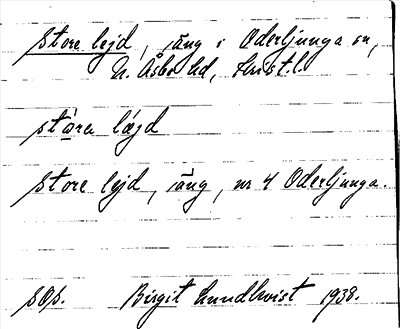 Store lejd, äng i Oderljunga sn,
N. Åsbo hd, Krist.l.
stǫra lę́gd
Store lejd, äng, nr 4 Oderljunga.
SOS. Birgit Lundkvist 1938.